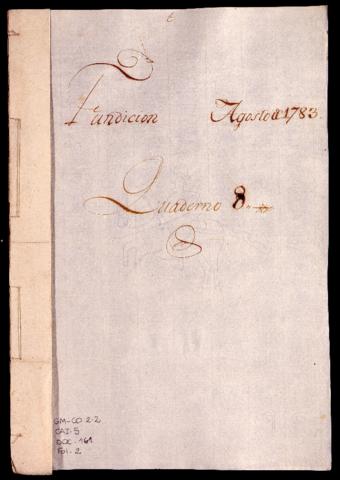 Fundicion Agosto de 1783.
Quaderno 8.
GM-CO 2.2
CAJ. 5
DOC. 161
Fol. 2